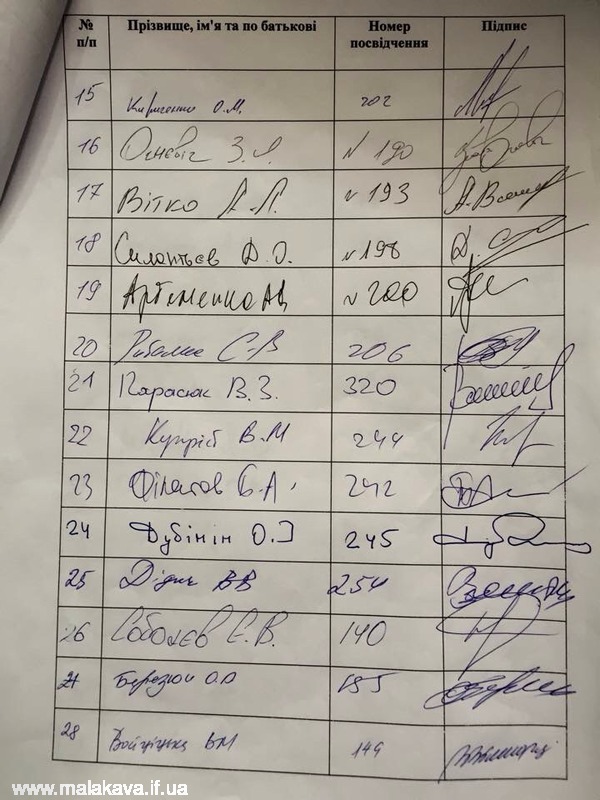 № п/п Прізвище, ім'я та по батькові Номер посвідчення Підпис
15 Кириченко О.М. 202
16 З.
17 Вітко А.Л. № 193
18 Силантьєв Д.О. № 198
19 Артеменко А. № 200
20 С.В 206
21 Парасюк В.З. 320
22 Купрій В.М 244
23 Філатов Б.А. 242
24 Дубінін О.І 245
25 Дідич ВВ 254
26 Соболєв Є.В. 140
27 Березюк О.Р 185
28 Войціцька ВМ 149
www.malakava.if.ua